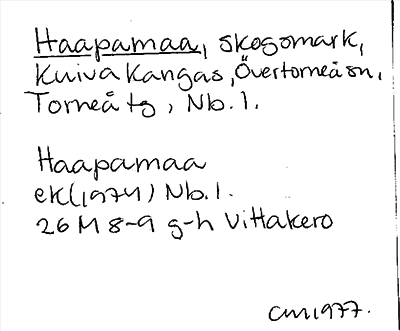 Haapamaa, skogsmark,
Kuivakangas, Övertorneå sn,
Torneå tg, Nb. l.
Haapamaa
ek (1974) Nb. l.
26 M 8-9 g-h Vittakero
CM 1977.